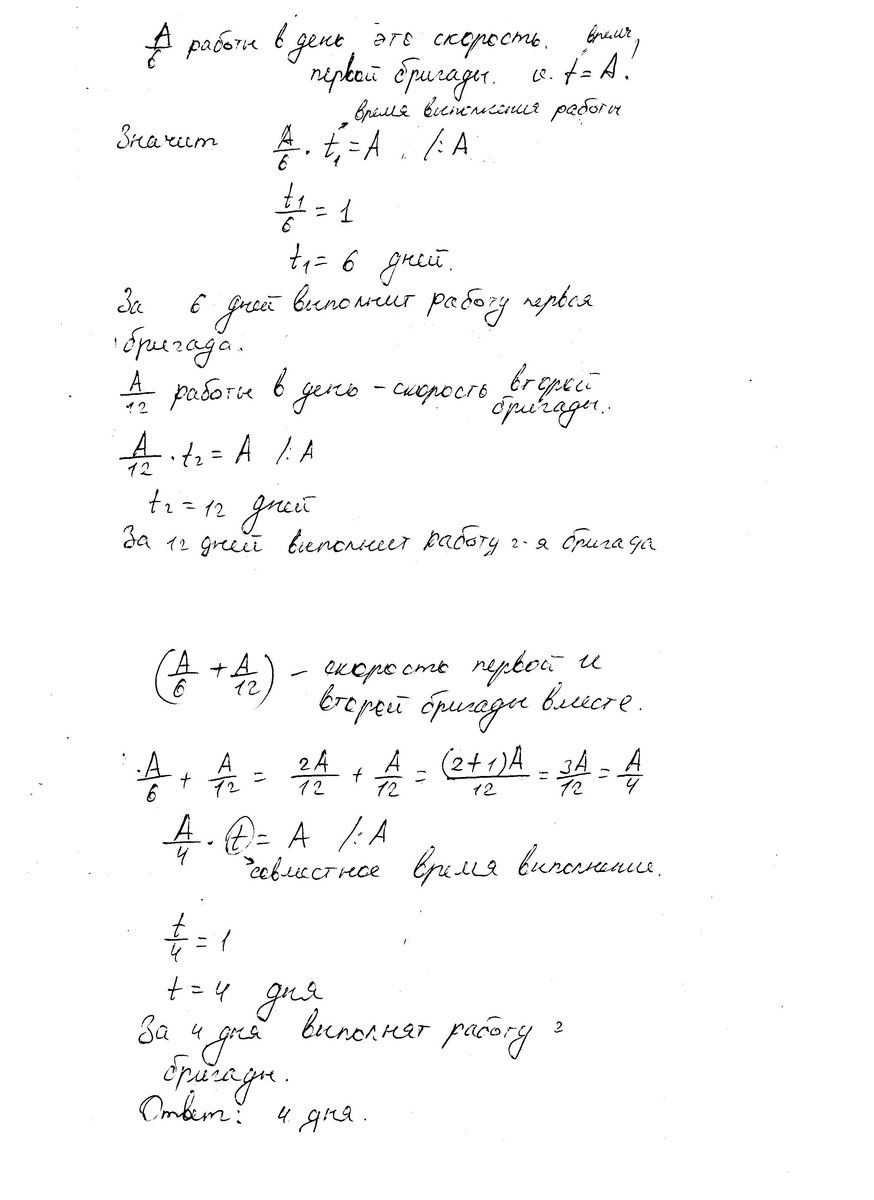 A/6 работы в день это скорость. время,
первой бригады. v. t = A.
время выполнения работы
Значит A/6 · t₁ = A, /: A
t₁/6 = 1
t₁ = 6 дней.
За 6 дней виполнит работу первая
бригада.
A/12 работы в день – скорость второй
бригады.
A/12 · t₂ = A /: A
t₂ = 12 дней
За 12 дней виполнит работу 2-я бригада
(A/6 + A/12) – скорость первой и
второй бригады вместе.
A/6 + A/12 = 2A/12 + A/12 = (2+1)A/12 = 3A/12 = A/4
A/4 · t = A /: A
совместное время виполнение.
t/4 = 1
t = 4 дня
За 4 дня виполнят работу 2
бригады.
Ответ: 4 дня.